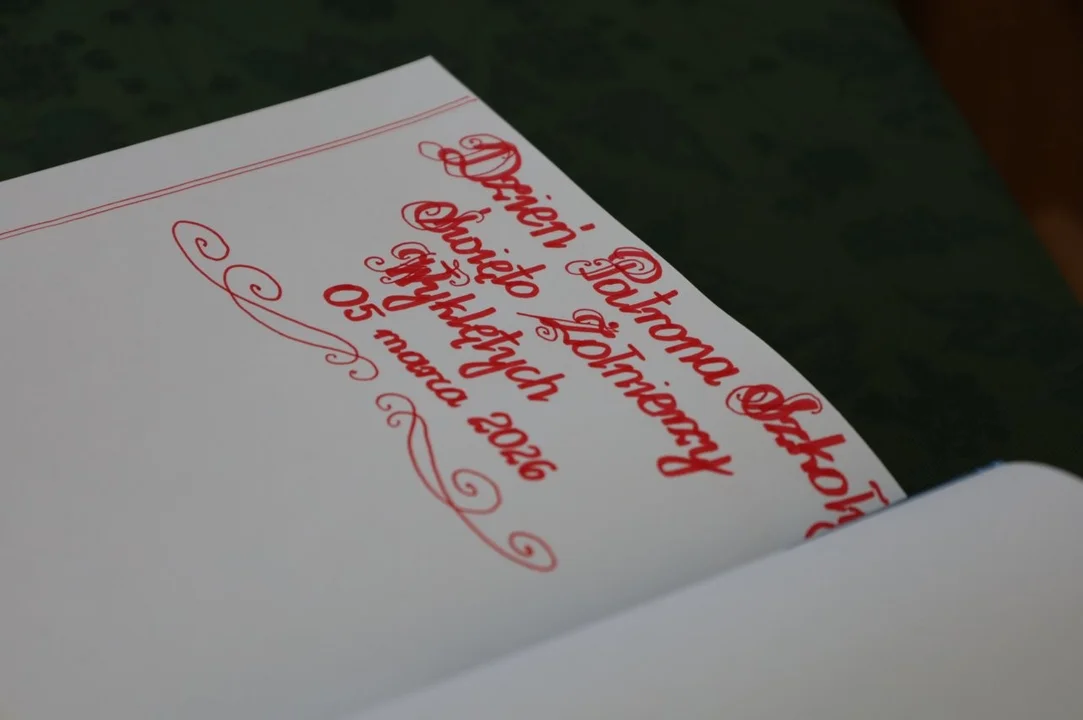 Dzień Patrona Szkoły
Święto Żołnierzy
Wyklętych
05 marca 2026